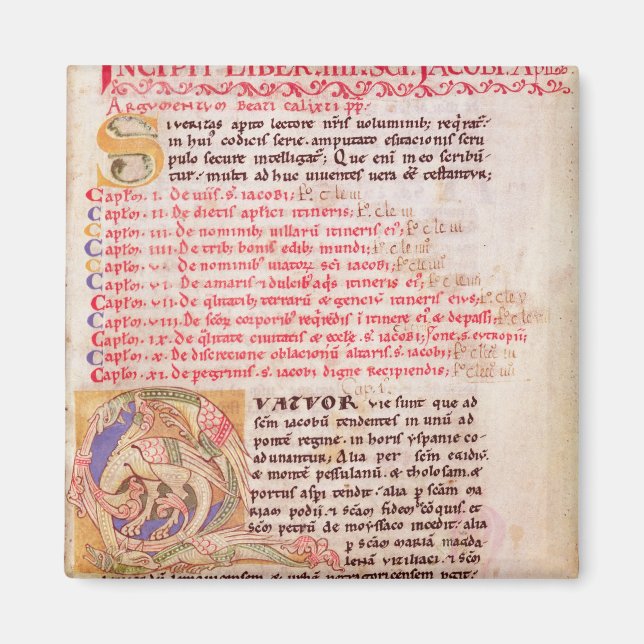 INCIPIT LIBER .IIII. SCI. JACOBI. Apli
Argumentum Beati Calixti pp.
SI VERITAS a perito lectore nr̄is voluminib; req̄rat᷑.
in hui᷒ codicis serie. amputato esitacionis scru
pulo secure intelligat᷑; Que eni᷑ in eo scribu᷑
tur. multi ad huc viventes vera eē testantur;
Capl̄m. I. De viis. s. iacobi;
Capl̄m. II. De dietis apl̄ici itineris;
Capl̄m. III. De nominib; villarū itineris ei᷒;
Capl̄m. IIII. De trib; bonis edib; mundi;
Capl̄m. V. De nominib; viator̄ sc̄i iacobi;
Capl̄m. VI. De amaris & dulcib; aq̄s itineris ei᷒;
Capl̄m. VII. De q̄litatib; terrarū & genciū itineris eius;
Capl̄m. VIII. De sc̄or̄ corporib᷒ req̄redis ī itinere ei᷒ & de passi;
Capl̄m. IX. De q̄litate civitatis & eccl̄e. s. iacobi;
Capl̄m. X. De discrecione oblacionū altaris. s. iacobi;
Capl̄m. XI. De peregrinis. s. iacobi digne recipiendis;
QUATUOR vie sunt que ad
sc̄m iacobū tendentes in unū ad
pontē regine. in horis yspanie co
adunantur; Alia per sc̄m egidiū
& montē pessulanū. & tholosam. &
portus asp̄i tendit. alia p̄ sc̄am ma
riam podii. & sc̄am fidem cōquis. et
sc̄m petrū de moyssaco incedit. alia
p̄ sc̄am mariā magda
lenā viziliaci. & sc̄m